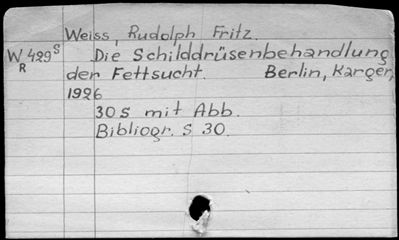 Weiss, Rudolph Fritz.
W 429 s Die Schilddrüsenbehandlung
R der Fettsucht. Berlin, Karger,
1926
30 S mit Abb.
Bibliogr. S 30.